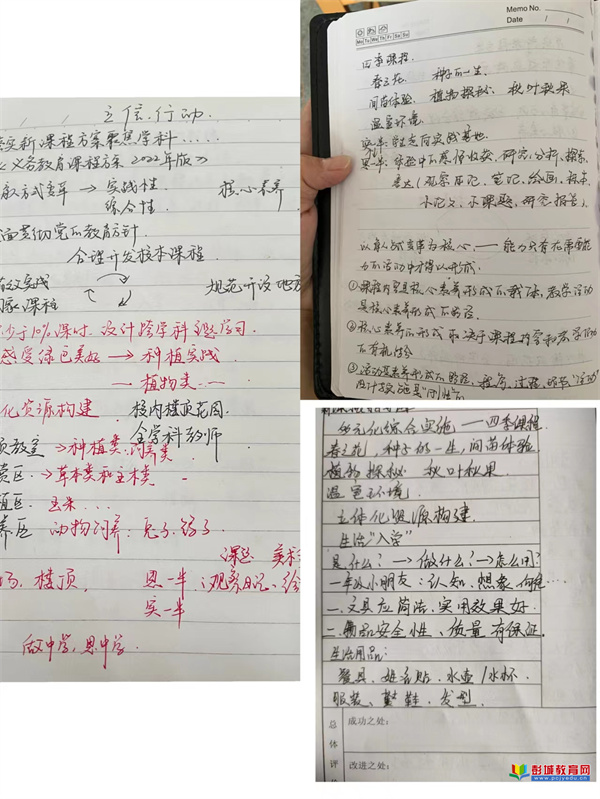 立信.行动
实新课程方案聚焦学科……
《义务教育课程方案 2022年版》
教方式变革 → 实践性 核心素养
综合性
面贯彻党的教育方针
合理开发校本课程
效实践 规范开设地方
国家课程
少于10%课时.设计跨学科主题学习.
感受绿色美好 → 种植实践
— 植物类 —
化资源构建 校内楼顶花园
全学科教师
教室 → 种植类、饲养类
区 → 草本类和主楼
植区. 玉米...
养区 动物饲养：兔子.鸽子
课题
楼顶. 思一半：观察日记、绘
实一半
做中学,思中学.
Memo No.
Date / /
Mo Tu We Th Fr Sa Su
四季课程.
春之花. 种子的一生.
间苗体验. 植物探秘. 秋叶秋果
温室环境.
实一半:
实验中不断悟收获、研究、分析、探索
表达(观察日记、笔记、绘画、
小论文、小课题、研究报告).
以育人方式变革为核心.——能力只有在需要能
力的活动中才得以形成.
①课程内容是核心素养形成的载体,教学活动
是核心素养形成的路径.
②核心素养的形成取决于课程内容和教学活动
的有机结合
③活动是素养形成的路径,
多元化综合实施——四季课程
春之花,种子的一生,间苗体验
植物探秘 秋叶秋果
温室环境.
立体化资源构建.
生活"入学"
是什么?→做什么?→怎么用?
一年级小朋友：认知、想象、
一.文具应简洁.实用效果好.
二.物品安全性、质量有保证.
生活用品：
餐具、姓名贴.水壶/水杯.
服装、鞋、发型.
总体评 成功之处：
改进之处：
彭城教育网
www.pcjyedu.cn